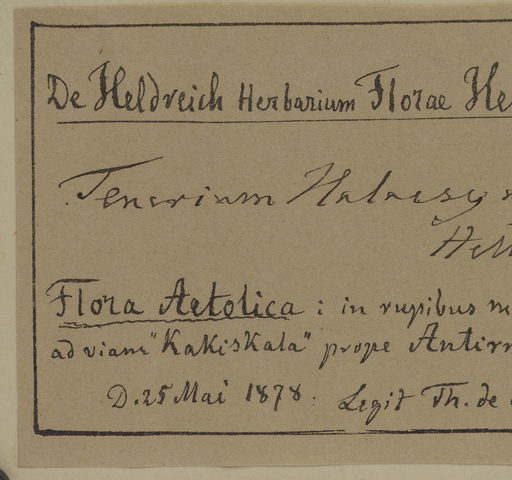 De Heldreich Herbarium Florae He
Teucrium Halacsy
Hel
Flora Aetolica : in rupibus m
ad viam "Kakiskala" prope Antirr
D. 25 Mai 1878. Legit Th. de